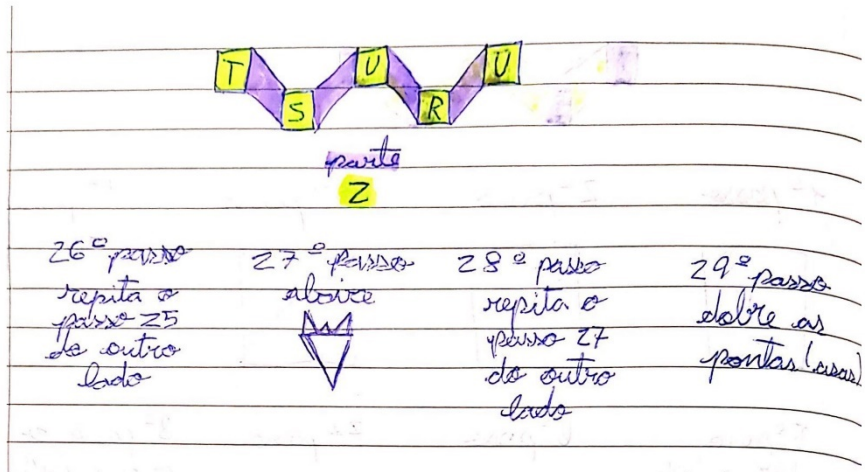 TSURU
parte
2
26º passo
repita o
passo 25
do outro
lado
27º passo
abaixe
28º passo
repita o
passo 27
do outro
lado
29º passo
dobre as
pontas (asas)